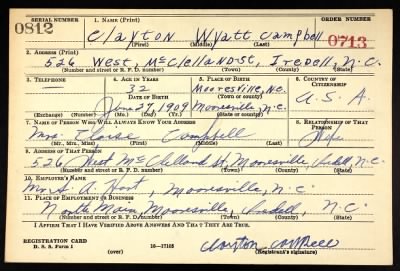 SERIAL NUMBER 1. NAME (Print) ORDER NUMBER
0812 Clayton Wyatt Campbell 0713
(First) (Middle) (Last)
2. ADDRESS (Print)
526 West, McClelland-St, Iredell, N.C.
(Number and street or R. F. D. number) (Town) (County) (State)
3. TELEPHONE 4. AGE IN YEARS 5. PLACE OF BIRTH 6. COUNTRY OF CITIZENSHIP
32 Mooresville, N.C.
DATE OF BIRTH (Town or county)
June 27, 1909 Mooresville, N.C. U.S.A.
(Exchange) (Number) (Mo.) (Day) (Yr.) (State or country)
7. NAME OF PERSON WHO WILL ALWAYS KNOW YOUR ADDRESS 8. RELATIONSHIP OF THAT PERSON
Mrs. Eloise Campbell Wife
(Mr., Mrs., Miss) (First) (Middle) (Last)
9. ADDRESS OF THAT PERSON
526, West McClelland St, Mooresville, Iredell, N.C.
(Number and street or R. F. D. number) (Town) (County) (State)
10. EMPLOYER'S NAME
Mr. A. Hart, Mooresville, N.C.
11. PLACE OF EMPLOYMENT OR BUSINESS
North Main, Mooresville, Iredell, N.C.
(Number and street or R. F. D. number) (Town) (County) (State)
I AFFIRM THAT I HAVE VERIFIED ABOVE ANSWERS AND THAT THEY ARE TRUE.
REGISTRATION CARD
D. S. S. Form 1 (over) 16—17105 Clayton Campbell
(Registrant's signature)